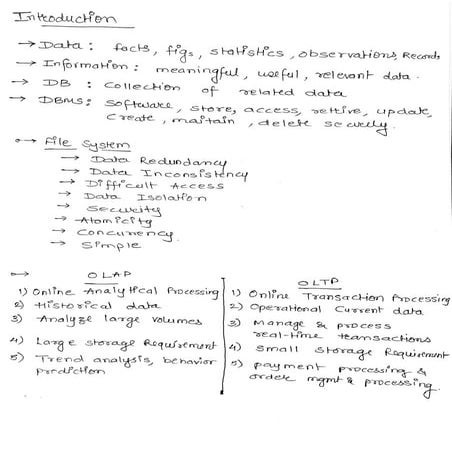 Introduction
→ Data : facts, figs, statistics, observations, Records
→ Information : meaningful, useful, relevant data.
→ DB : Collection of related data
→ DBMS : Software, store, access, retrive, update,
create, maitain, delete securely.
→ File System
→ Data Redundancy
→ Data Inconsistency
→ Difficult Access
→ Data Isolation
→ Security
→ Atomicity
→ Concurrency
→ Simple
→ OLAP
1) Online Analytical Processing
2) Historical data
3) Analyze large volumes
4) Large storage Requirement
5) Trend analysis, behavior
prediction
OLTP
1) Online Transaction Processing
2) Operational Current data
3) Manage & process
real-time transactions
4) Small Storage Requirement
5) payment processing &
order mgmt & processing.